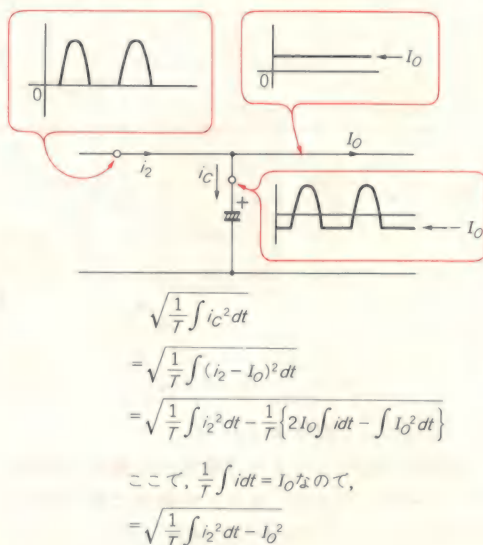 0
0
← I_O
i_2
I_O
i_C
+
← I_O
√(1/T ∫ i_C² dt)
=√(1/T ∫ (i_2 − I_O)² dt)
=√(1/T ∫ i_2² dt − 1/T {2I_O ∫ idt − ∫ I_O² dt})
ここで, 1/T ∫ idt = I_O なので,
=√(1/T ∫ i_2² dt − I_O²)